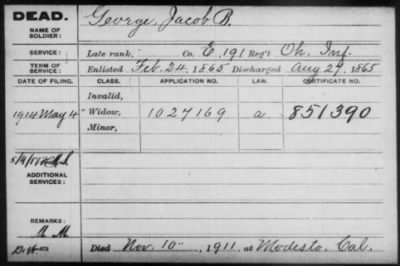 DEAD.
NAME OF SOLDIER: George, Jacob B.
SERVICE: Late rank, Co. E, 191 Reg't Oh. Inf.
TERM OF SERVICE: Enlisted Feb. 24, 1865 Discharged Aug 27, 1865
DATE OF FILING. CLASS. APPLICATION NO. LAW. CERTIFICATE NO.
Invalid,
1914 May 4 Widow, 1027169 a 851390
Minor,
ADDITIONAL SERVICES:
REMARKS:
Died Nov. 10, 1911, at Modesto, Cal.